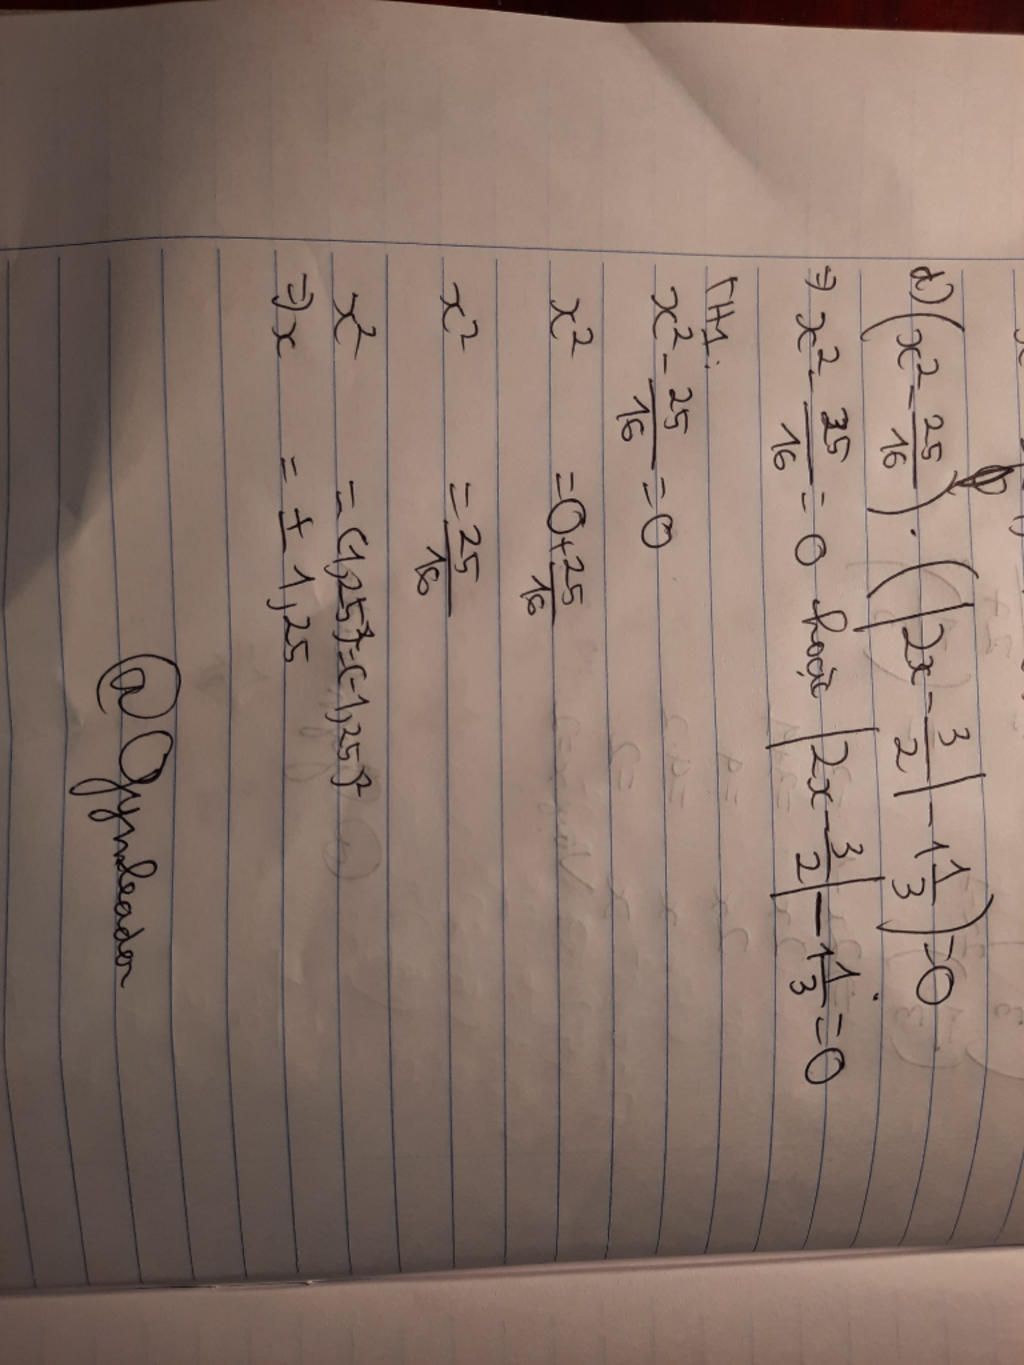 d) (x² - 25/16) · (|2x - 3/2| - 1 1/3) = 0
⇒ x² - 25/16 = 0 hoặc |2x - 3/2| - 1 1/3 = 0
TH1:
x² - 25/16 = 0
x² = 0 + 25/16
x² = 25/16
x² = (1,25)² = (-1,25)²
⇒ x = ± 1,25